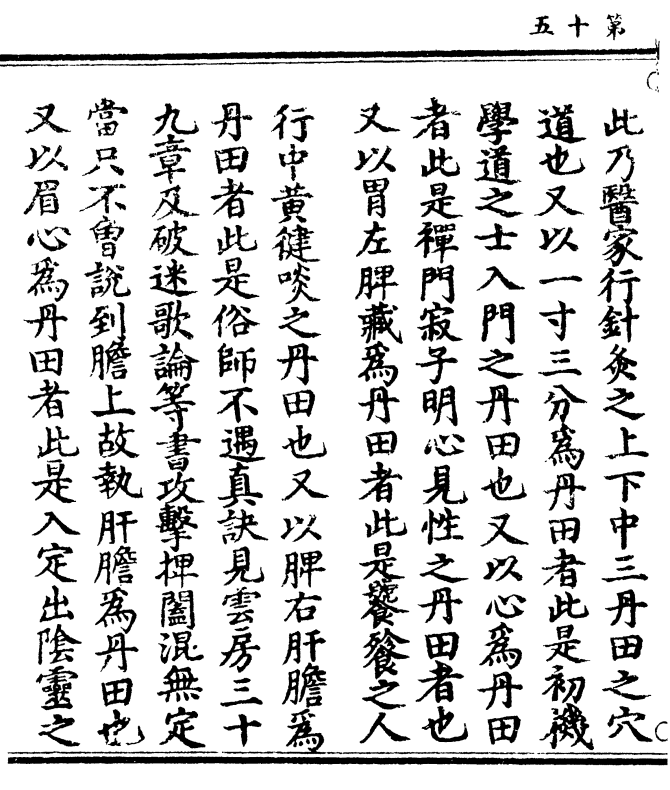 第十五
此乃醫家行針灸之上下中三丹田之穴
道也又以一寸三分為丹田者此是初機
學道之士入門之丹田也又以心為丹田
者此是禪門寂子明心見性之丹田者也
又以胃左脾藏為丹田者此是饕餮之人
行中黃健啖之丹田也又以脾右肝膽為
丹田者此是俗師不遇真訣見雲房三十
九章及破迷歌論等書攻擊捭闔混無定
當只不曾說到膽上故執肝膽為丹田也
又以眉心為丹田者此是入定出陰靈之